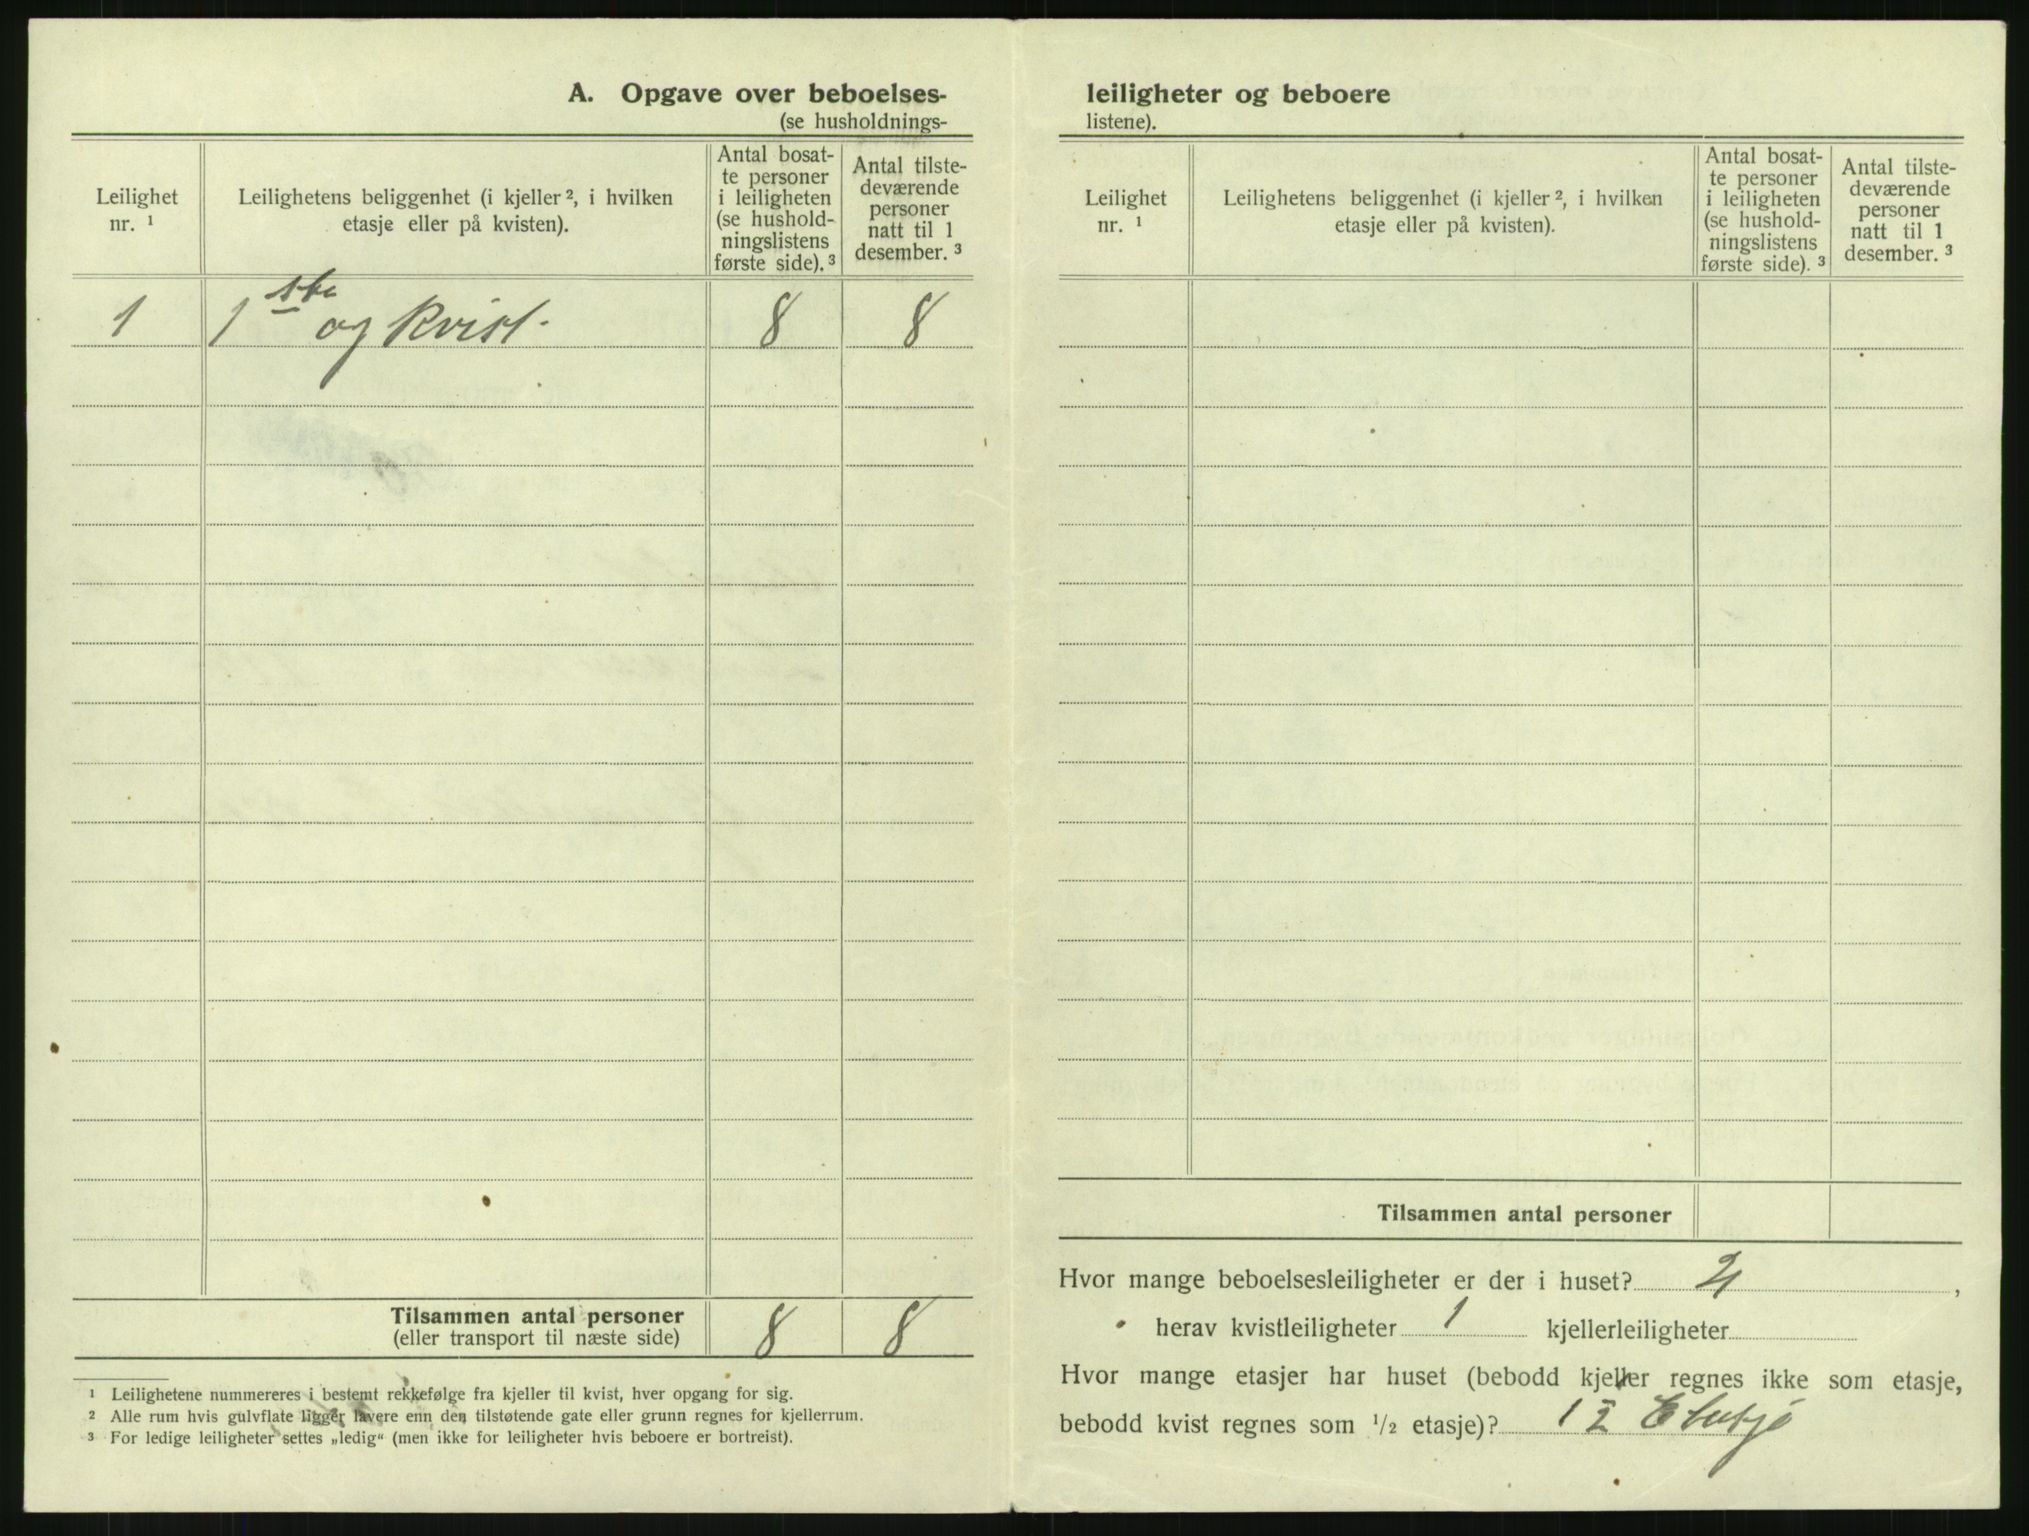 A. Opgave over beboelses-
(se husholdnings-
Leilighet
nr. ¹
Leilighetens beliggenhet (i kjeller ², i hvilken
etasje eller på kvisten).
Antal bosat-
te personer
i leiligheten
(se hushold-
ningslistens
første side). ³
Antal tilste-
deværende
personer
natt til 1
desember. ³
1 1ste og kvist. 8 8
Tilsammen antal personer 8 8
(eller transport til næste side)
¹ Leilighetene nummereres i bestemt rekkefølge fra kjeller til kvist, hver opgang for sig.
² Alle rum hvis gulvflate ligger lavere enn den tilstøtende gate eller grunn regnes for kjellerrum.
³ For ledige leiligheter settes „ledig“ (men ikke for leiligheter hvis beboere er bortreist).
leiligheter og beboere
listene).
Leilighet
nr. ¹
Leilighetens beliggenhet (i kjeller ², i hvilken
etasje eller på kvisten).
Antal bosat-
te personer
i leiligheten
(se hushold-
ningslistens
første side). ³
Antal tilste-
deværende
personer
natt til 1
desember. ³
Tilsammen antal personer
Hvor mange beboelsesleiligheter er der i huset? 2,
herav kvistleiligheter 1 kjellerleiligheter
Hvor mange etasjer har huset (bebodd kjeller regnes ikke som etasje,
bebodd kvist regnes som ½ etasje)? 1 ½